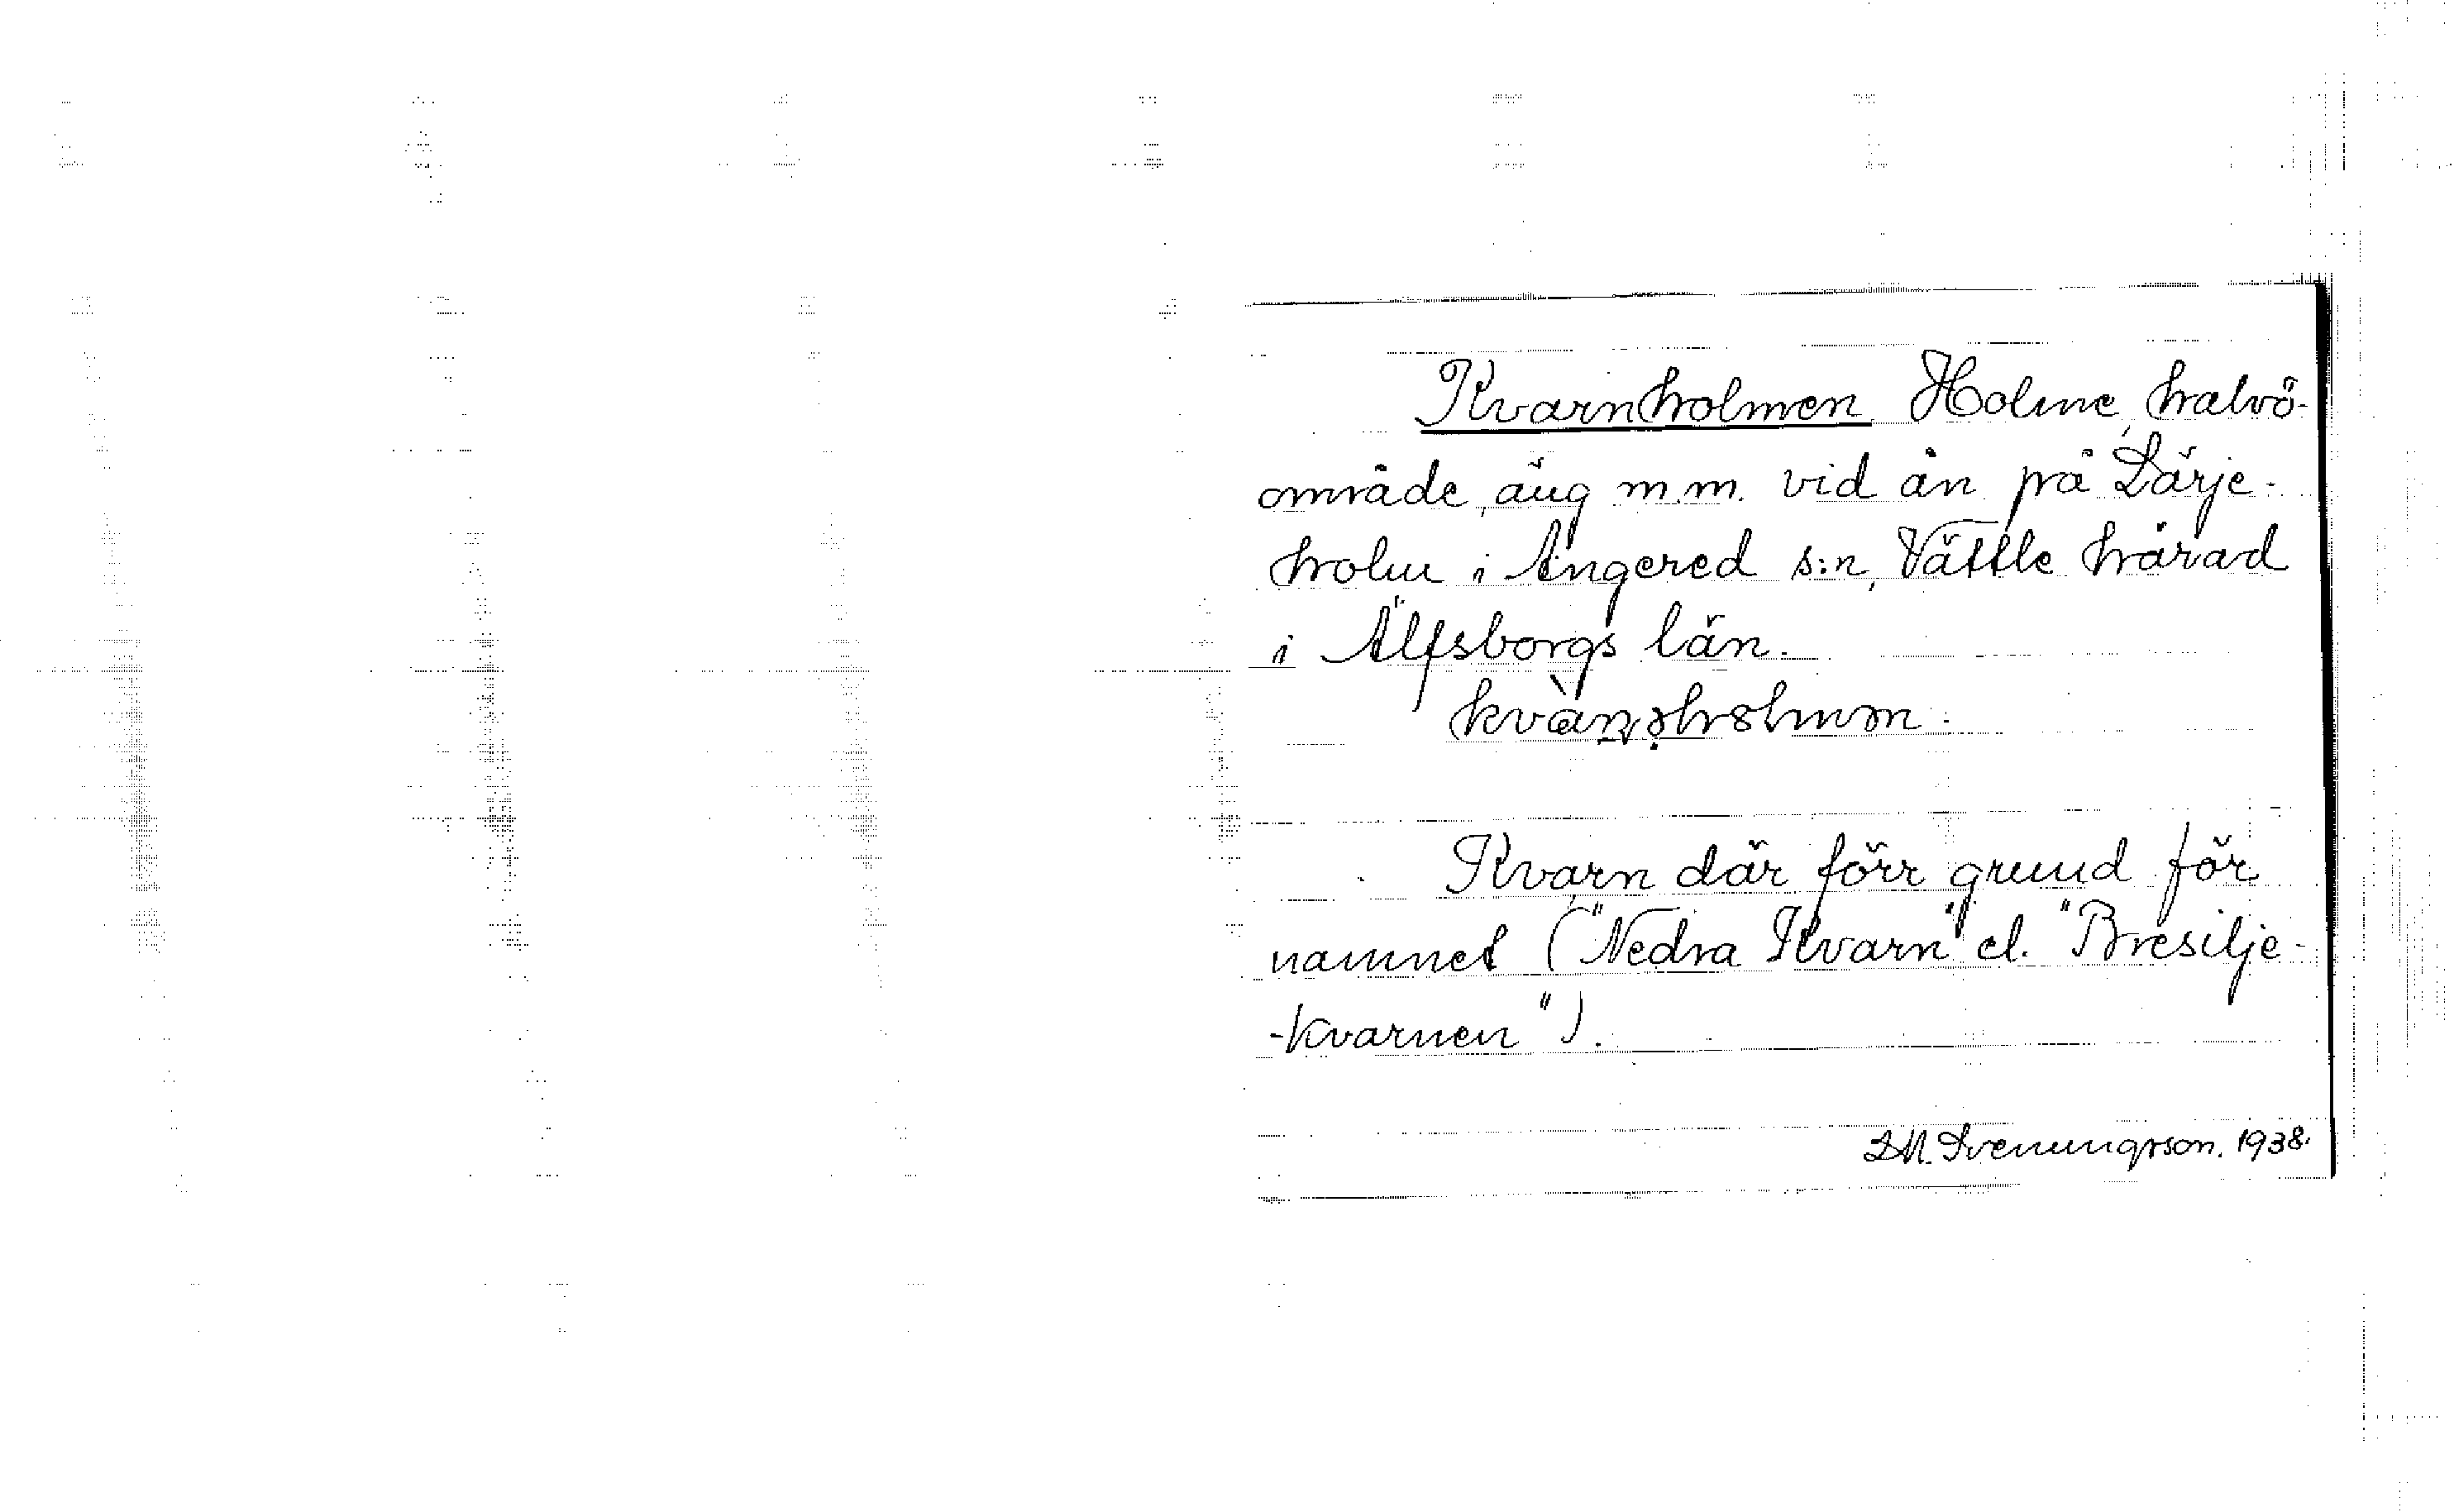 Kvarnholmen. Holme, halvö-
område, äng m.m. vid ån på Lärje-
holm i Angered s:n, Vättle härad
i Älfsborgs län.
Kvarn där förr grund för
namnet ("Nedra Kvarn" el. "Bresilje-
-kvarnen").
Svenungsson. 1938.